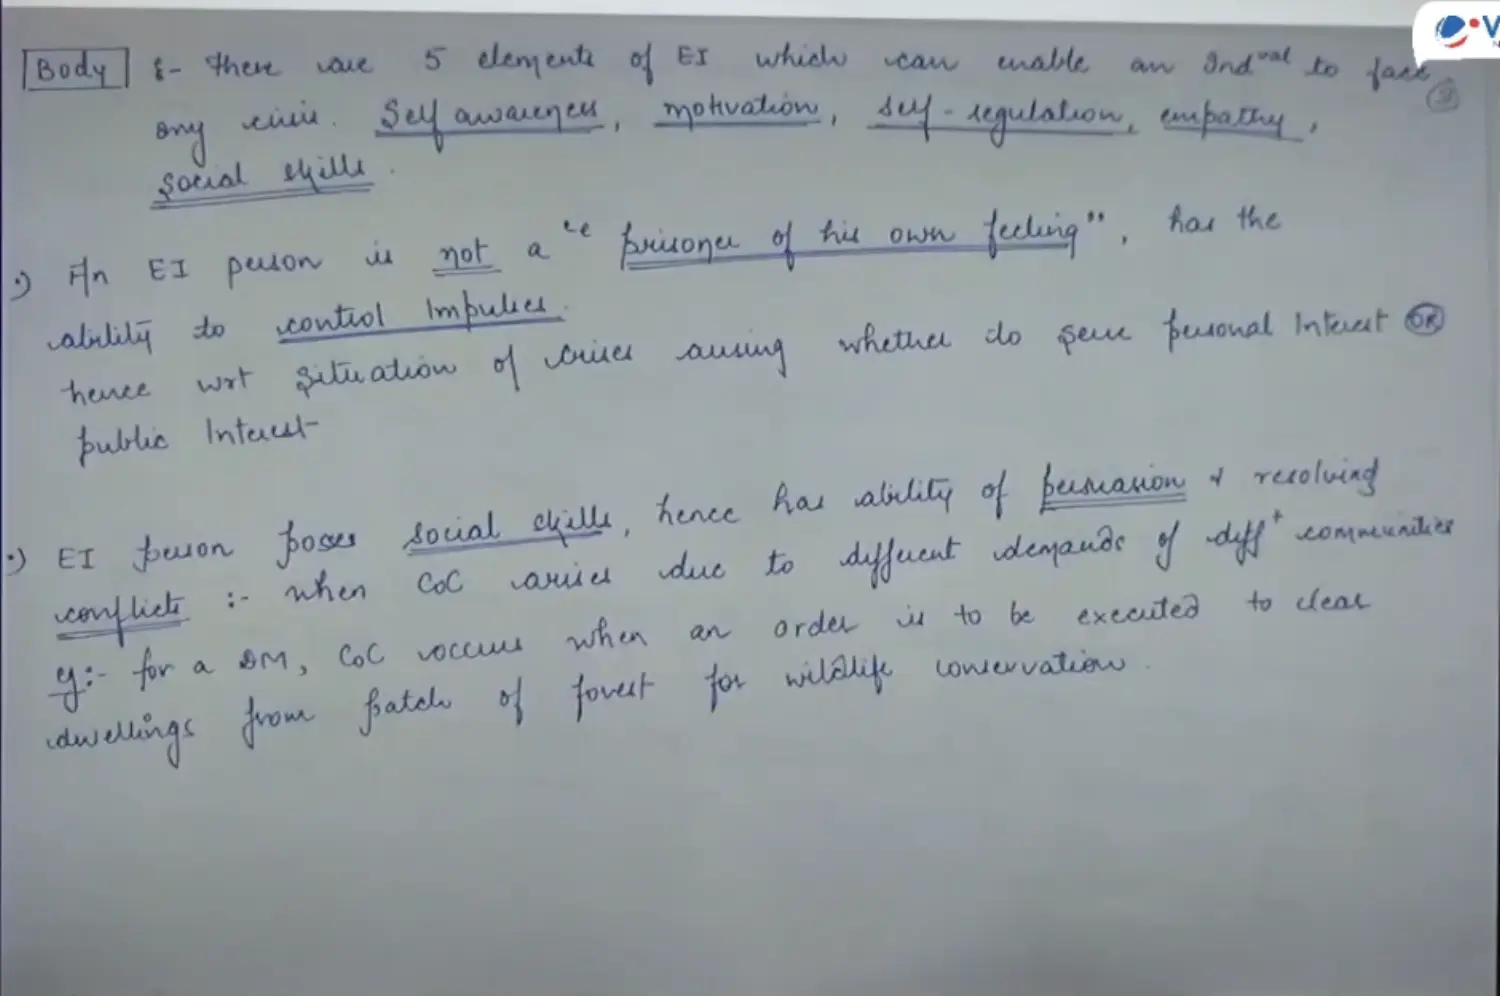 Body :- there are 5 elements of EI which can enable an Ind^ual to face
any crisis. Self awareness, motivation, self-regulation, empathy,
social skills.
•) An EI person is not a "prisoner of his own feeling", has the
ability to control Impulses.
hence wrt situation of crises arising whether do serve personal Interest OR
public Interest
•) EI person poses social skills, hence has ability of persuasion & resolving
conflicts :- when CoC arises due to different demands of diff^t communities
eg:- for a DM, CoC occurs when an order is to be executed to clear
dwellings from patch of forest for wildlife conservation.